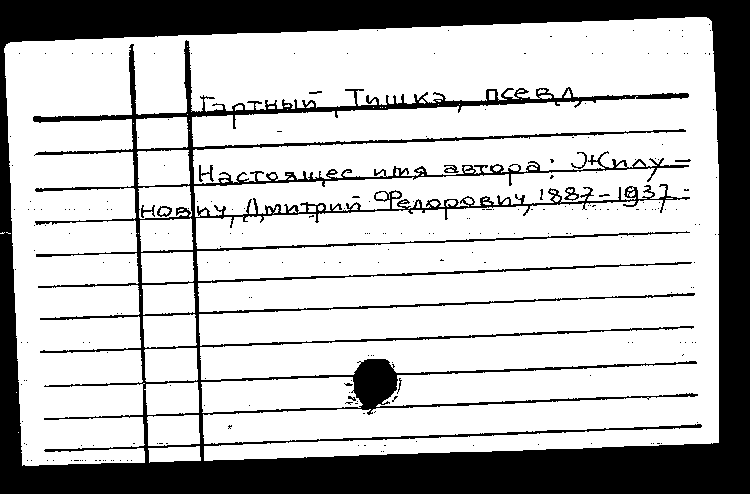 Гартный, Тишка, псевд.
Настоящее имя автора: Жилу-
нович, Дмитрий Федорович, 1887-1937.